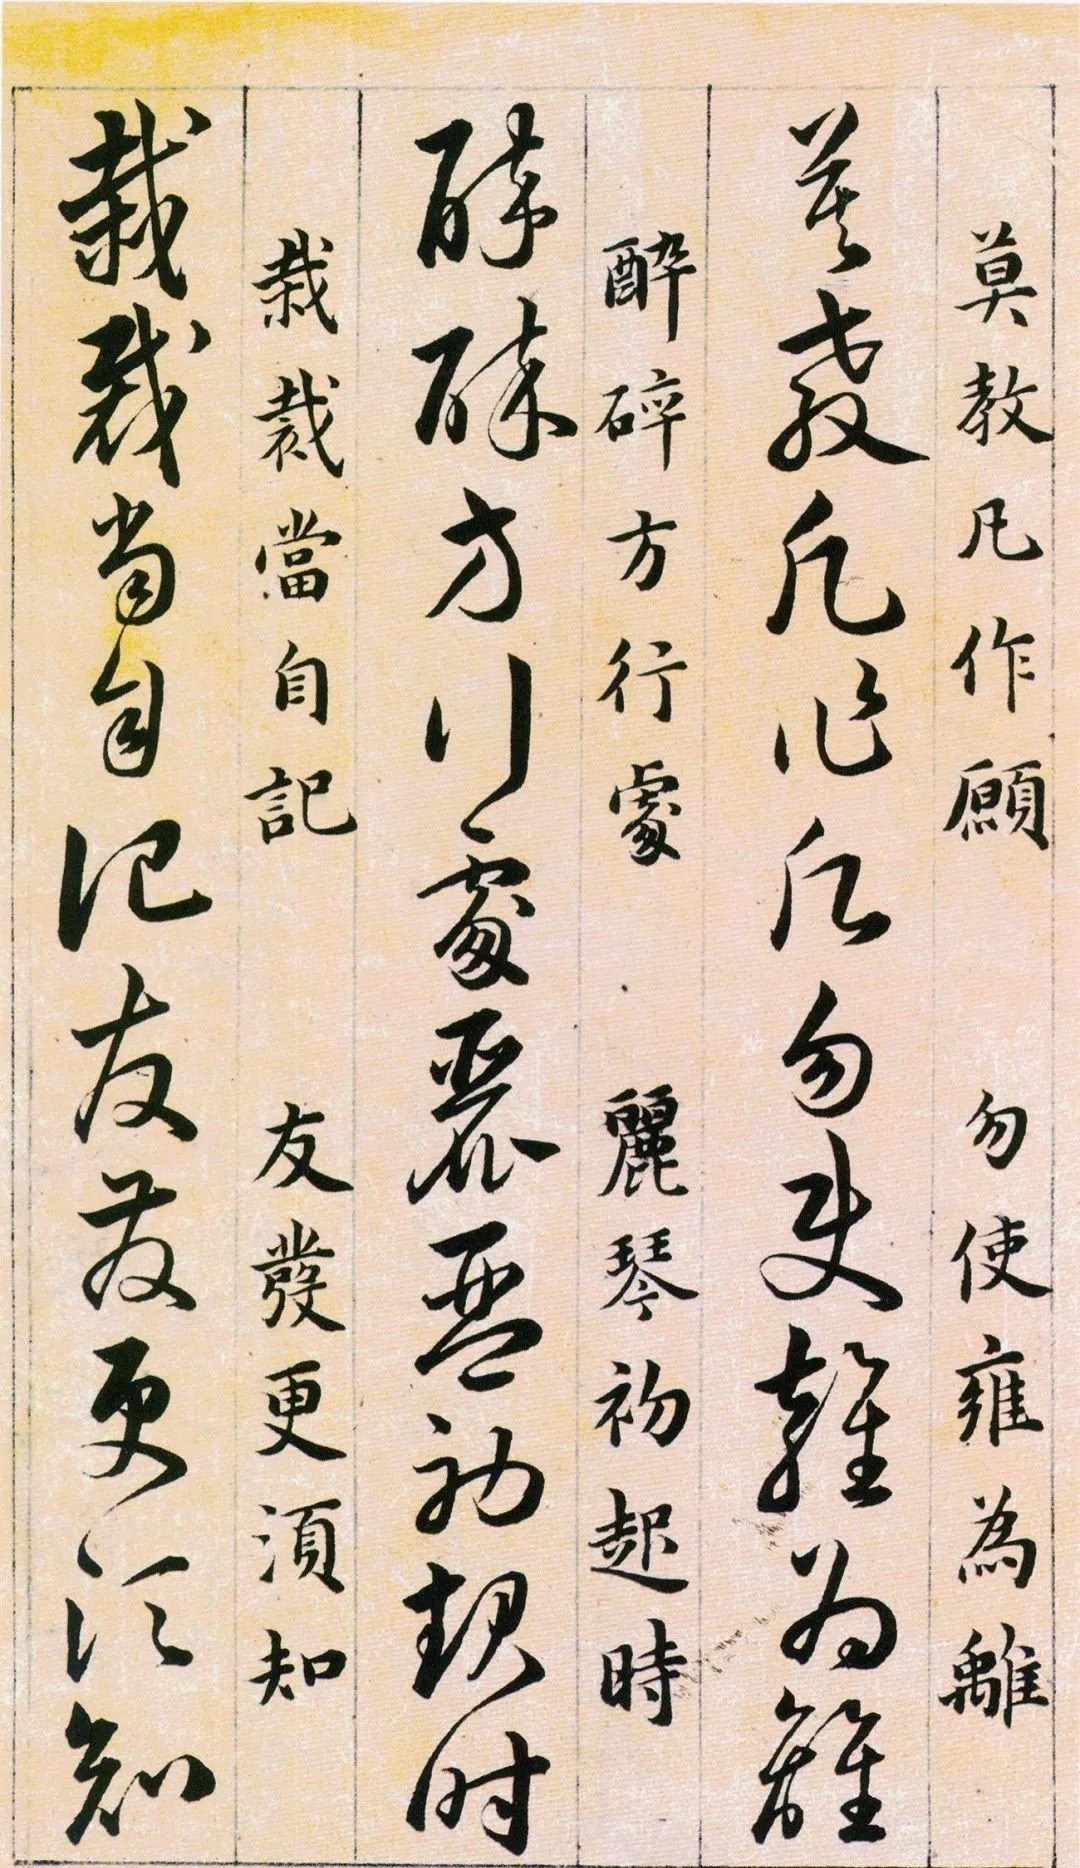 莫教凡作願 勿使雍為離
莫教凡作願勿使雍為離
醉碎方行處 麗琴初起時
醉碎方行處麗琴初起時
栽裁當自記 友發更須知
栽裁當自記友發更須知